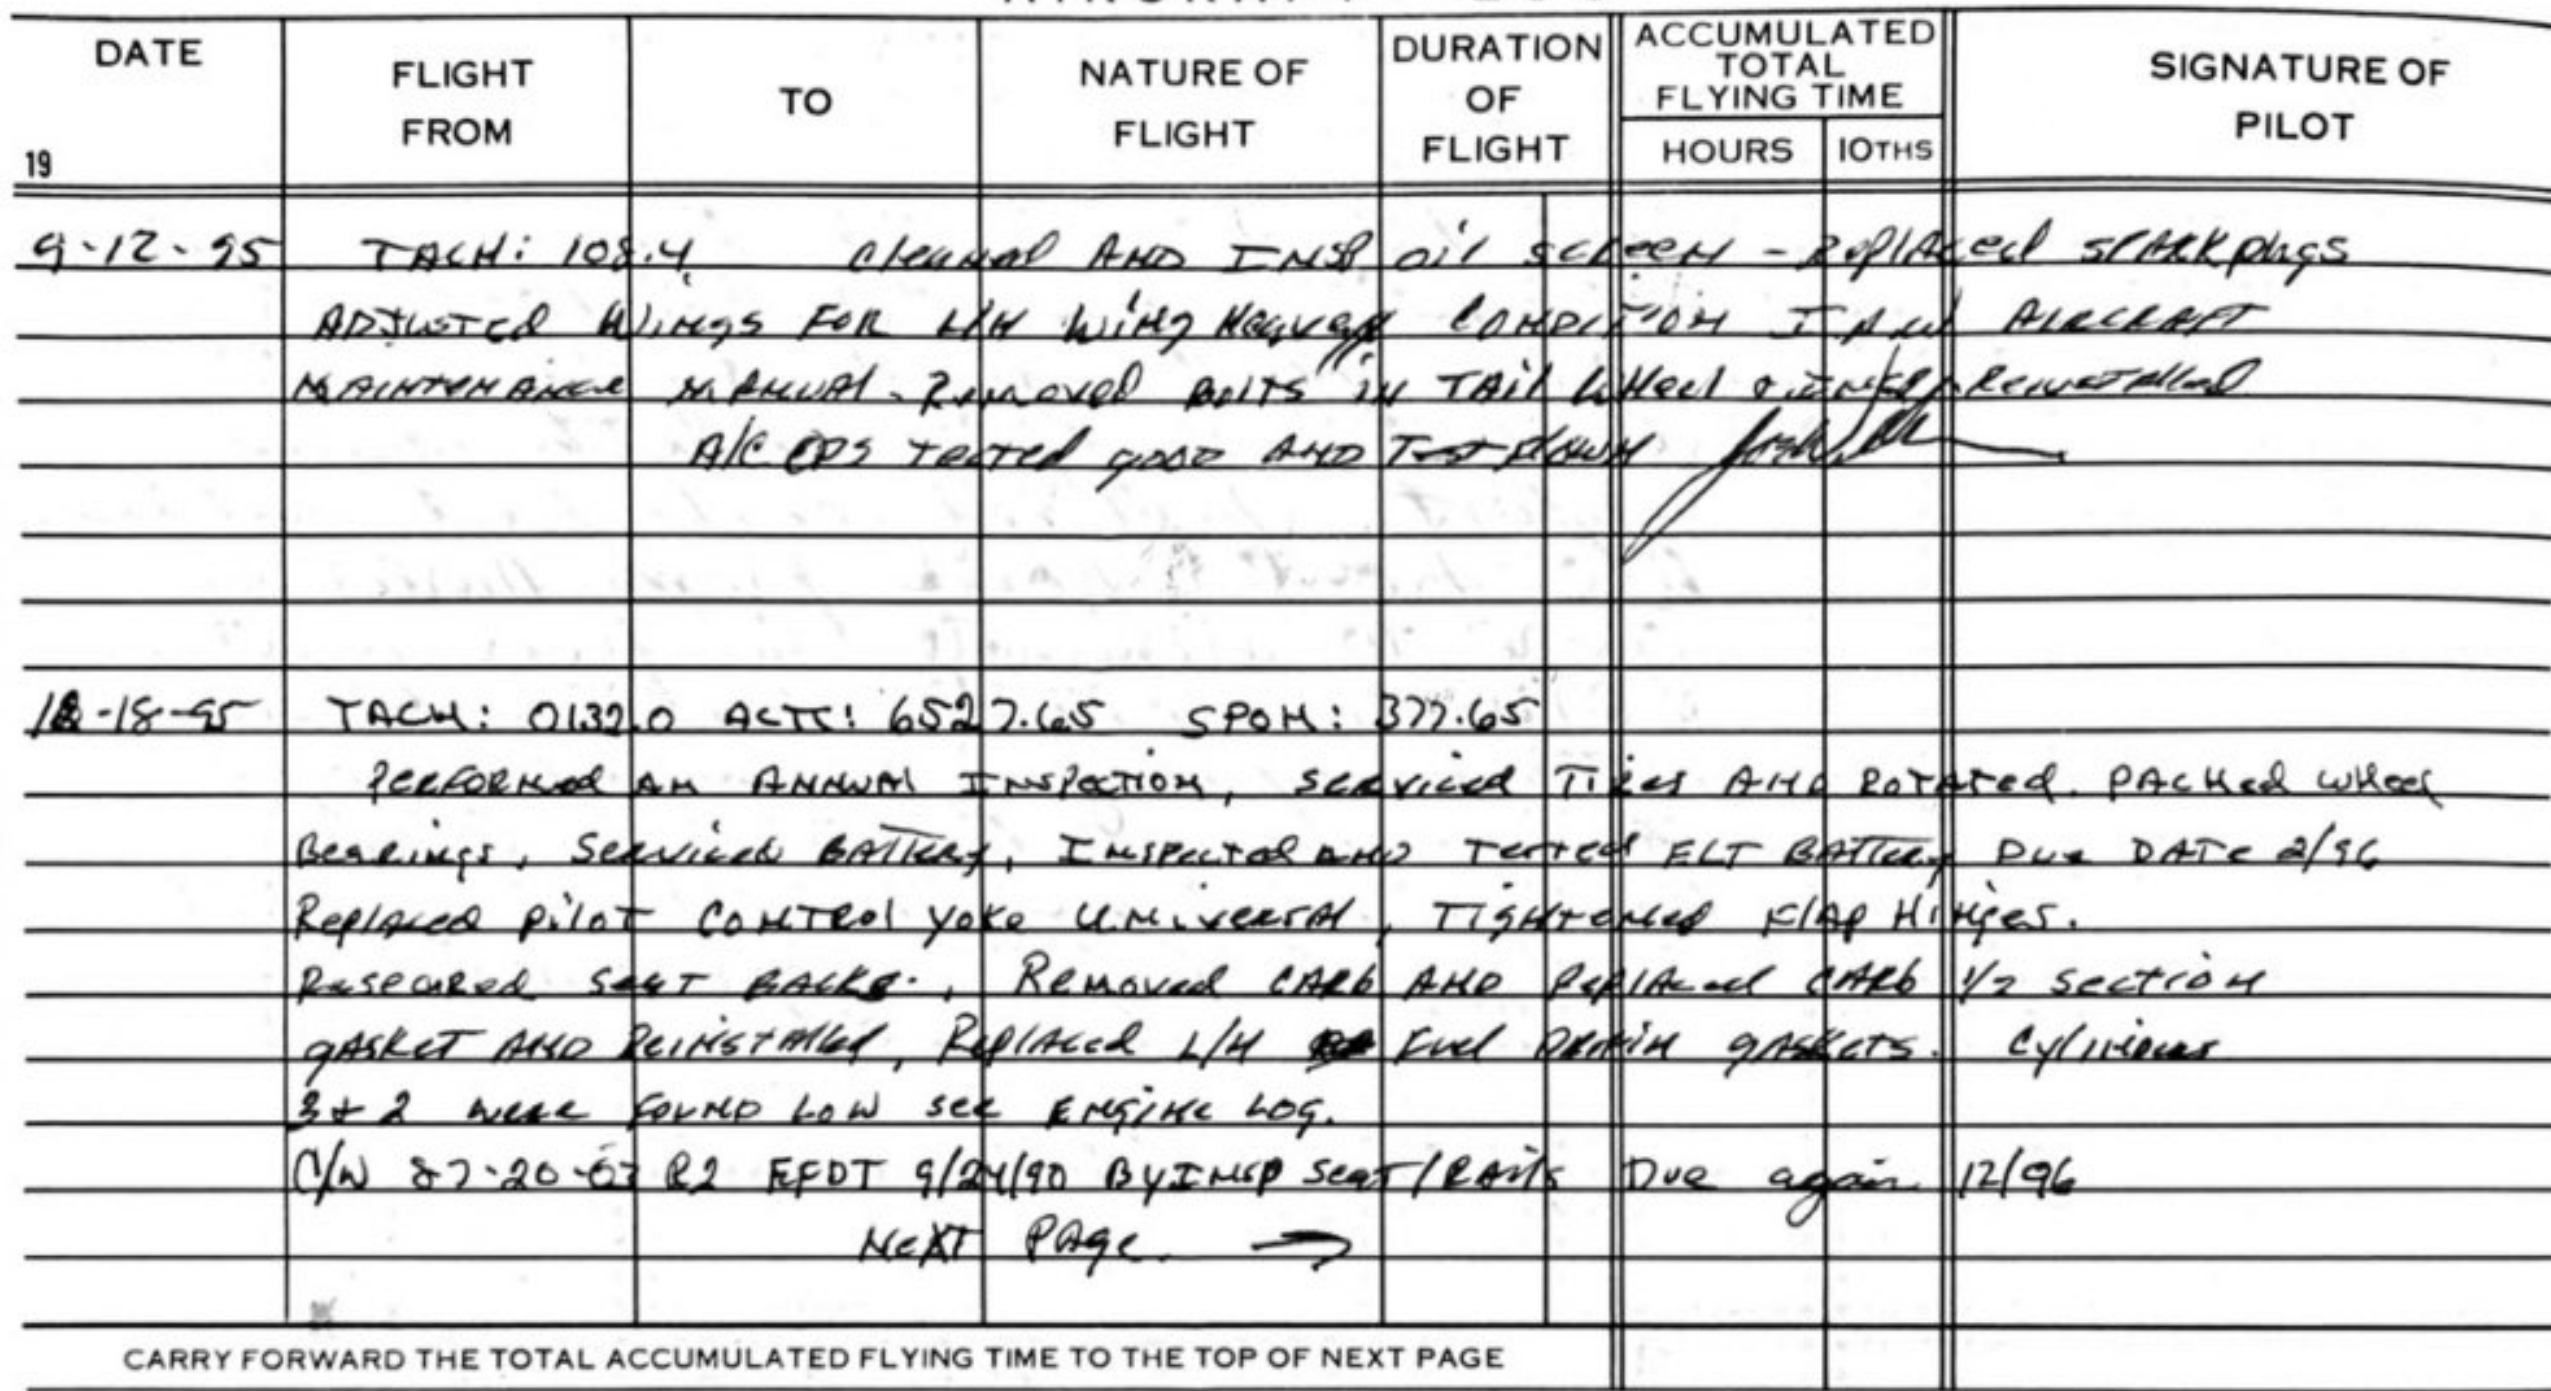 DATE
19
FLIGHT
FROM
TO
NATURE OF
FLIGHT
DURATION
OF
FLIGHT
ACCUMULATED
TOTAL
FLYING TIME
HOURS
10THS
SIGNATURE OF
PILOT
9-12-95 TACH: 108.4 Cleaned AND INSP oil screen - Replaced spARKplugs
ADJusTed Wings FOR L/H Wing Heavy CONDITION I.A.W AIRCRAFT
MAINTENANCE MANUAL - Removed Bolts in TAil Wheel & INSP, Reinstalled
A/C OPS tested good AND Test Flown
-18-95 TACH: 0132.0 ACTT: 6527.65 SPOH: 377.65
PERFORMed AN ANNUAl INSPection, serviced Tires AND ROTATed. PACKed wheel
Bearings, Serviced BATTery, INSPected AND Tested ELT BATTery Due DATe 2/96
ReplAced pilot CONTROl yoke UNiversal, TIGHTened FlAp Hinges.
Resecured SeaT BACKs., Removed CARb AND RePlAced CARb 1/2 section
gASKeT AND Reinstalled, ReplAced L/H Fuel DRAiN gASKeTS. Cylinders
3 & 2 were FOUND LOW see ENGiNe LOG.
C/W 87-20-03 R2 EFDT 9/24/90 By INSP SeaT/RAils Due again 12/96
NeXT PAge →
CARRY FORWARD THE TOTAL ACCUMULATED FLYING TIME TO THE TOP OF NEXT PAGE